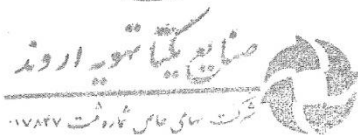 صنایع یکتا تهویه اروند
شرکت سهامی خاص شماره ثبت ۱۷۸۴۷۰